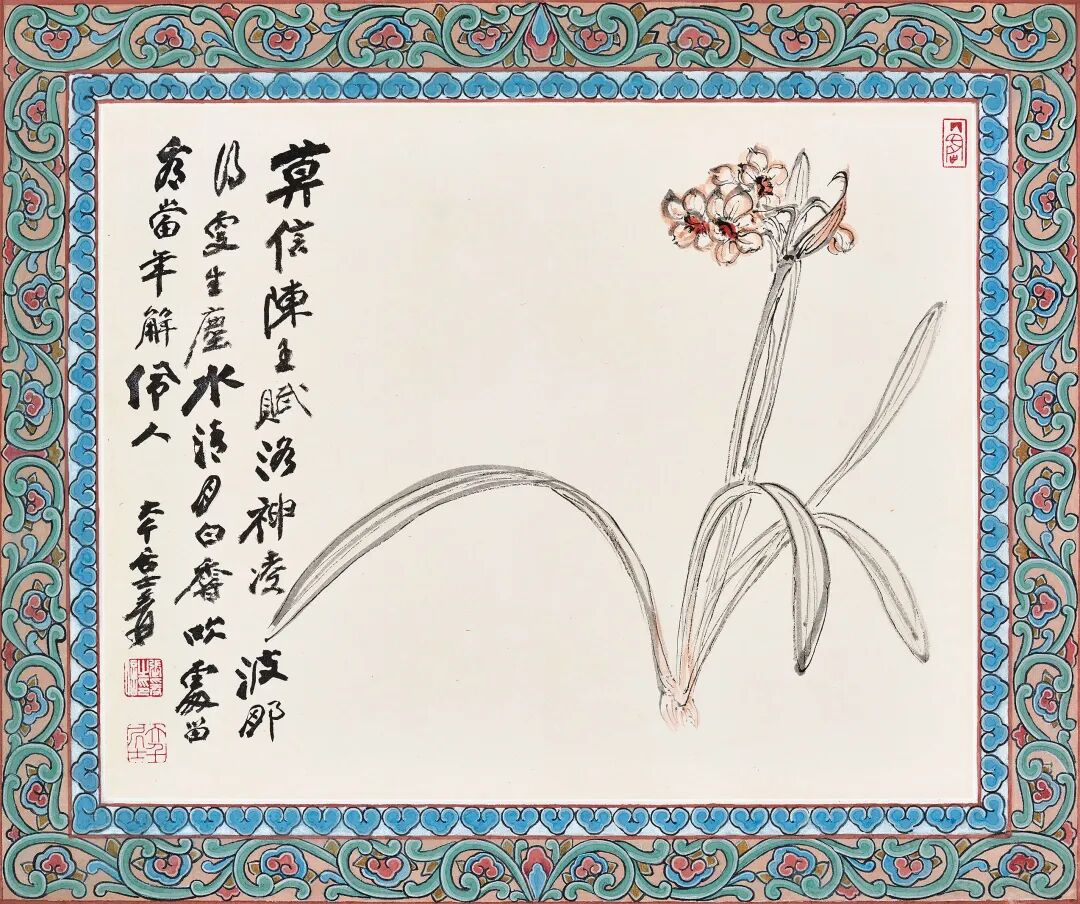 莫信陳王賦洛神凌波那
得更生塵水清月白吹處留
看當年解佩人
大千居士爰
張爰之印
大千居士